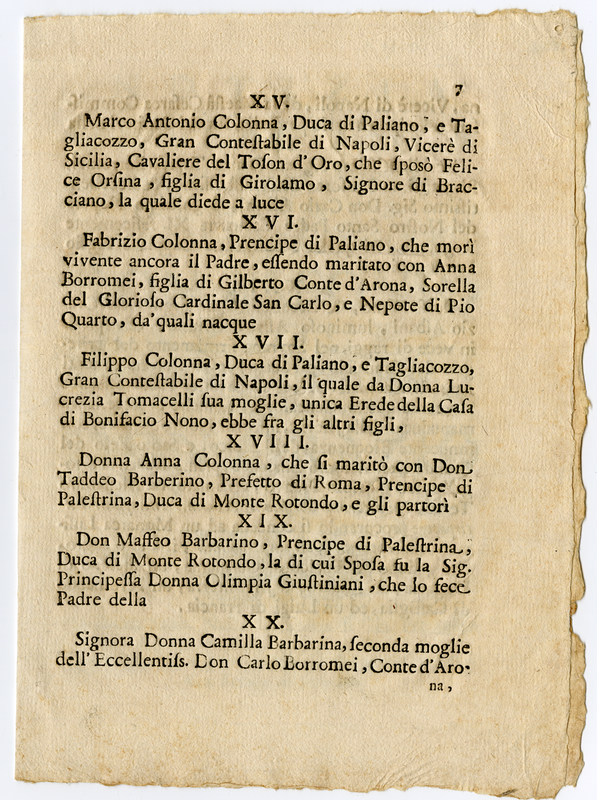 7
X V.
Marco Antonio Colonna, Duca di Paliano, e Ta-
gliacozzo, Gran Conteſtabile di Napoli, Vicerè di
Sicilia, Cavaliere del Toſon d'Oro, che ſposò Feli-
ce Orſina, figlia di Girolamo, Signore di Brac-
ciano, la quale diede a luce
X V I.
Fabrizio Colonna, Prencipe di Paliano, che morì
vivente ancora il Padre, eſſendo maritato con Anna
Borromei, figlia di Gilberto Conte d'Arona, Sorella
del Glorioſo Cardinale San Carlo, e Nepote di Pio
Quarto, da'quali nacque
X V I I.
Filippo Colonna, Duca di Paliano, e Tagliacozzo,
Gran Conteſtabile di Napoli, il quale da Donna Lu-
crezia Tomacelli ſua moglie, unica Erede della Caſa
di Bonifacio Nono, ebbe fra gli altri figli,
X V I I I.
Donna Anna Colonna, che ſi maritò con Don
Taddeo Barberino, Prefetto di Roma, Prencipe di
Paleſtrina, Duca di Monte Rotondo, e gli partorì
X I X.
Don Maffeo Barbarino, Prencipe di Paleſtrina,
Duca di Monte Rotondo, la di cui Spoſa fu la Sig.
Principeſſa Donna Olimpia Giuſtiniani, che lo fece
Padre della
X X.
Signora Donna Camilla Barbarina, ſeconda moglie
dell'Eccellentiſs. Don Carlo Borromei, Conte d'Aro-
na,